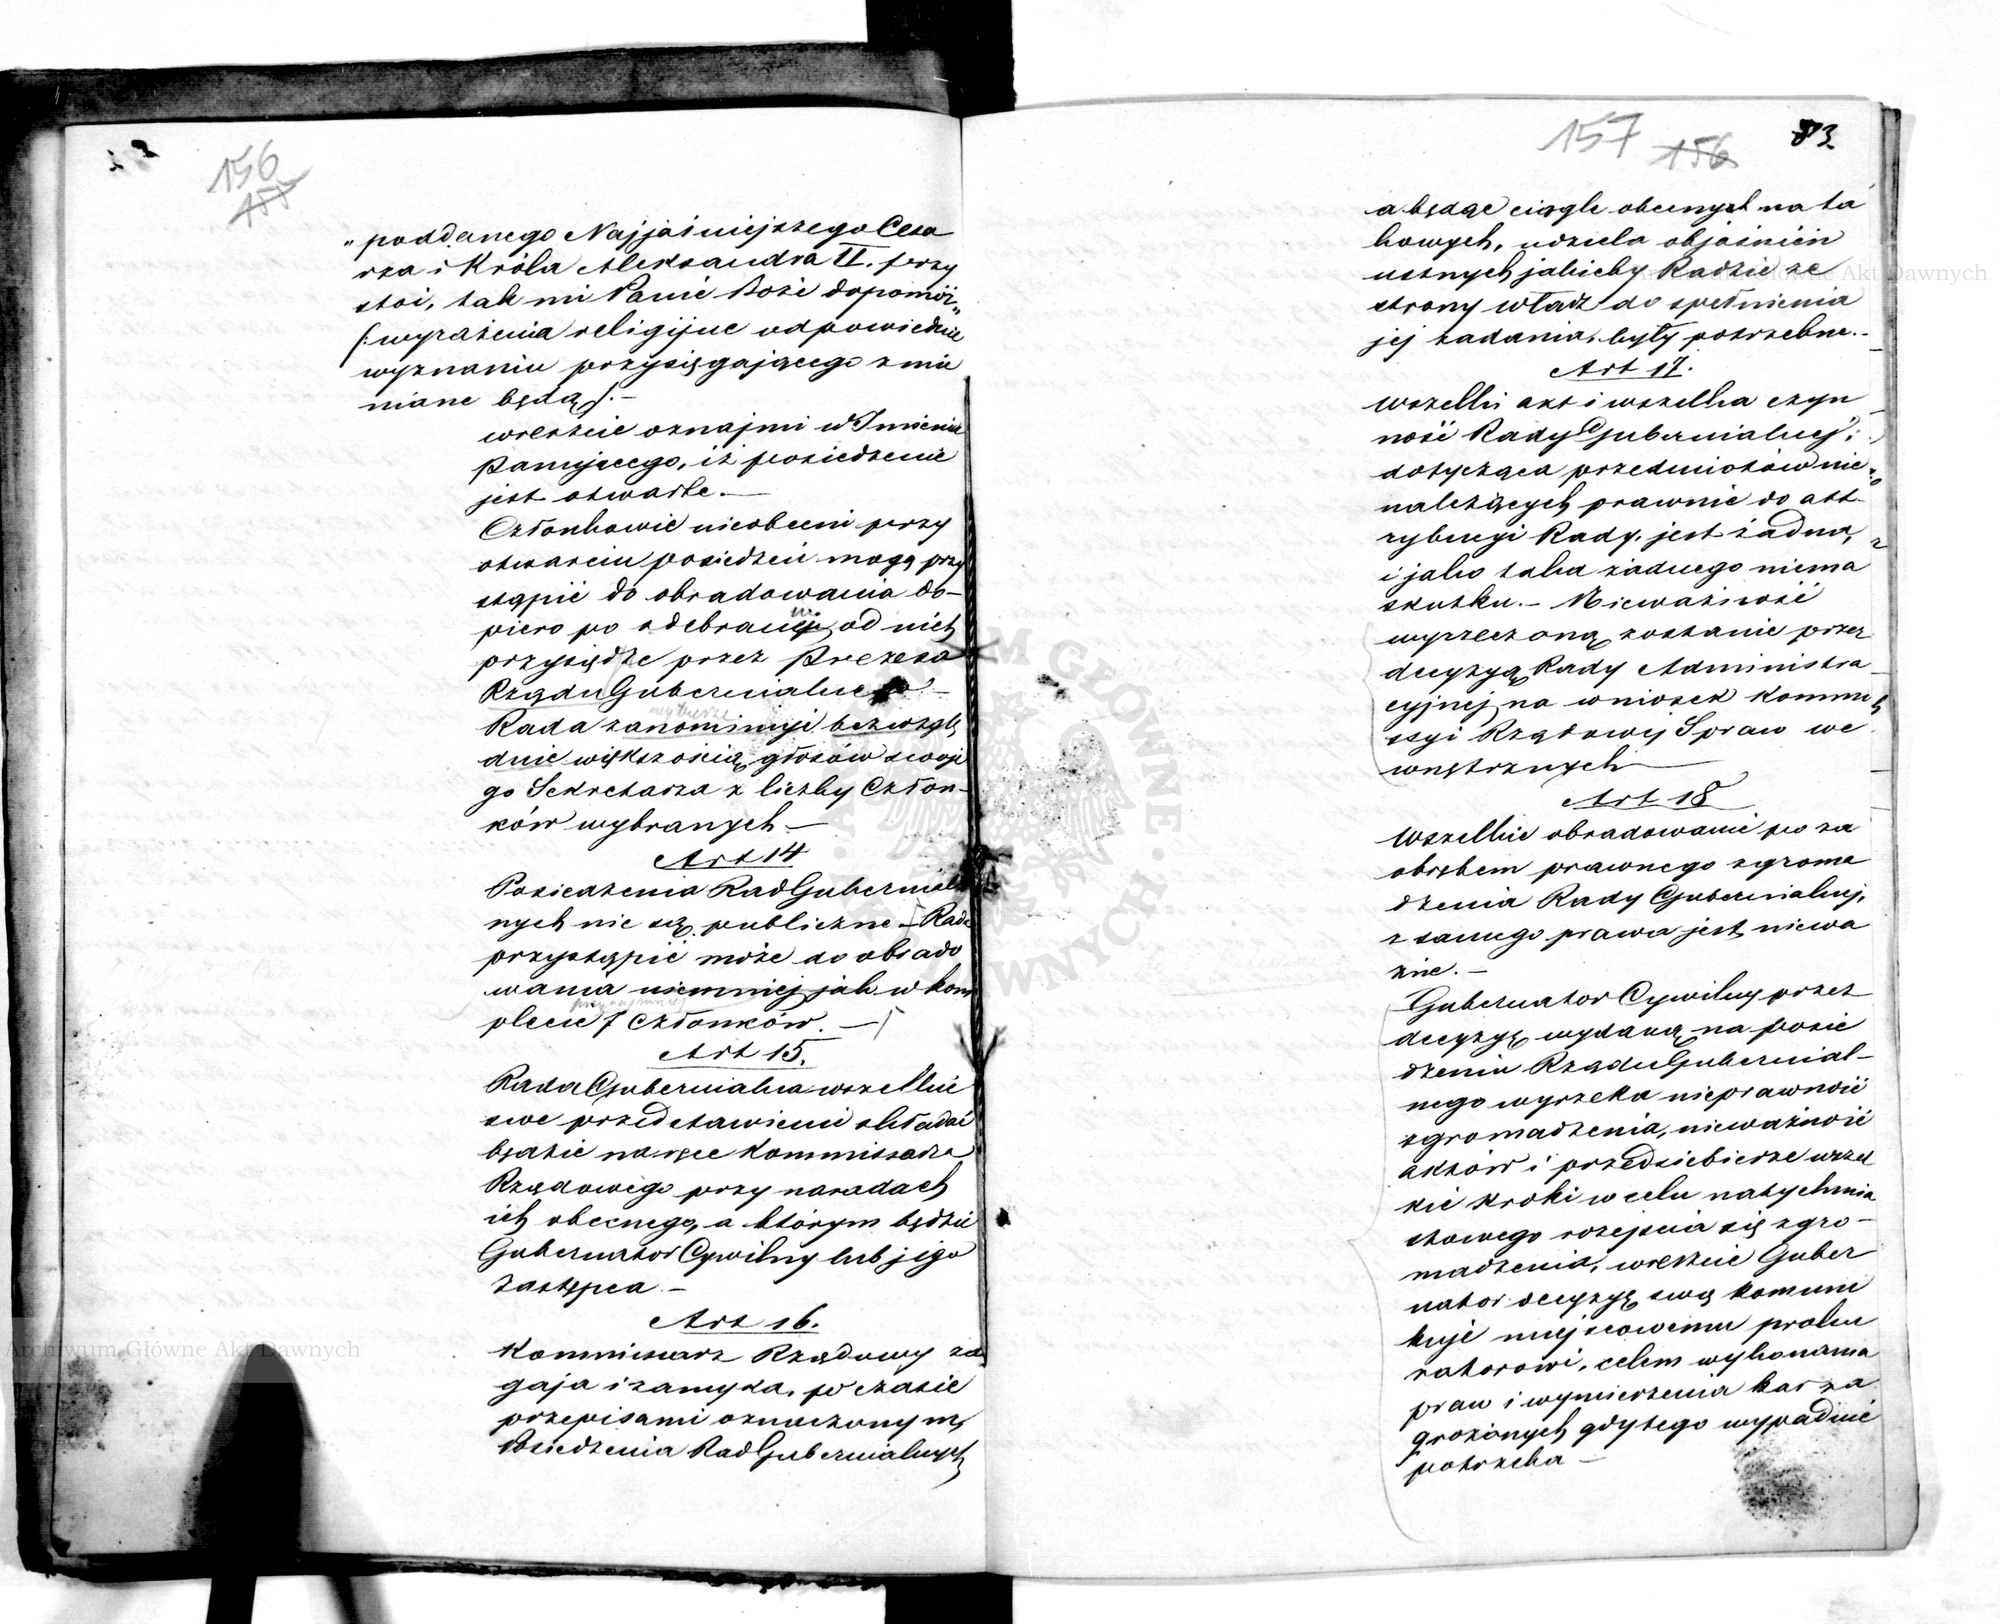 156
155
„poddanego Najjaśniejszego Cesa
rza i Króla Aleksandra II. przy
stoi, tak mi Panie Boże dopomóż"
/:wyrażenia religijne odpowiednie
wyznaniu przysięgającego zmie
niane będą/.—
wreszcie oznajmi w Imieniu
Panującego, iż posiedzenie
jest otwarte.—
Członkowie nieobecni przy
otwarciu posiedzeń mogą przy
stąpić do obradowania do-
piero po odebraniu od nich
przysiędze przez Prezesa
Rządu Gubernialnego—
Rada zanominuje bezwzglę
dnie większością głosów swoje
go Sekretarza z liczby Człon-
ków wybranych—
Art 14
Posiedzenia Rad Gubernial
nych nie są publiczne—Rada
przystąpić może do obrado
wania niemniej jak w kom
przynajmniej
plecie 7 członków.—
Art 15.
Rada Gubernialna wszelkie
swe przedstawienia składać
będzie na ręce Kommissarza
Rządowego przy naradach
ich obecnego, a którym będzie
Gubernator Cywilny lub jego
Zastępca—
Art 16.
Kommissarz Rządowy za
gaja i zamyka, w czasie
przepisami oznaczonym,
Posiedzenia Rad Gubernialnych
157 156 83
a będąc ciągle obecnych na ta
kowych, udziela objaśnień
ustnych jakieby Radzie ze
strony władz do spełnienia
jej zadania, były potrzebne.—
Art 17.
Wszelki akt i wszelka czyn
ność Rady Gubernialnej,
dotycząca przedmiotów nie
należących prawnie do att-
rybucyi Rady, jest żadna,
i jako taka żadnego niema
skutku.— Nieważność
wyrzeczoną zostanie przez
decyzyą Rady Administra
cyjnej na wniosek Kommi
ssyi Rządowej Spraw We
wnętrznych—
Art 18
Wszelkie obradowanie po za
obrębem prawnego zgroma
dzenia Rady Gubernialnej,
z samego prawa jest niewa
żne.—
Gubernator Cywilny przez
decyzyę wydaną na posie
dzeniu Rządu Gubernial-
nego wyrzeka nieprawność
zgromadzenia, nieważność
aktów i przedsiębierze wszel
kie kroki w celu natychmia
stowego rozejścia się zgro-
madzenia, wreszcie Guber
nator decyzyę swą komuni
kuje miejscowemu proku
ratorowi, celem wykonania
praw i wymierzenia kar za
grożonych gdy tego wypadnie
potrzeba—
Archiwum Główne Akt Dawnych